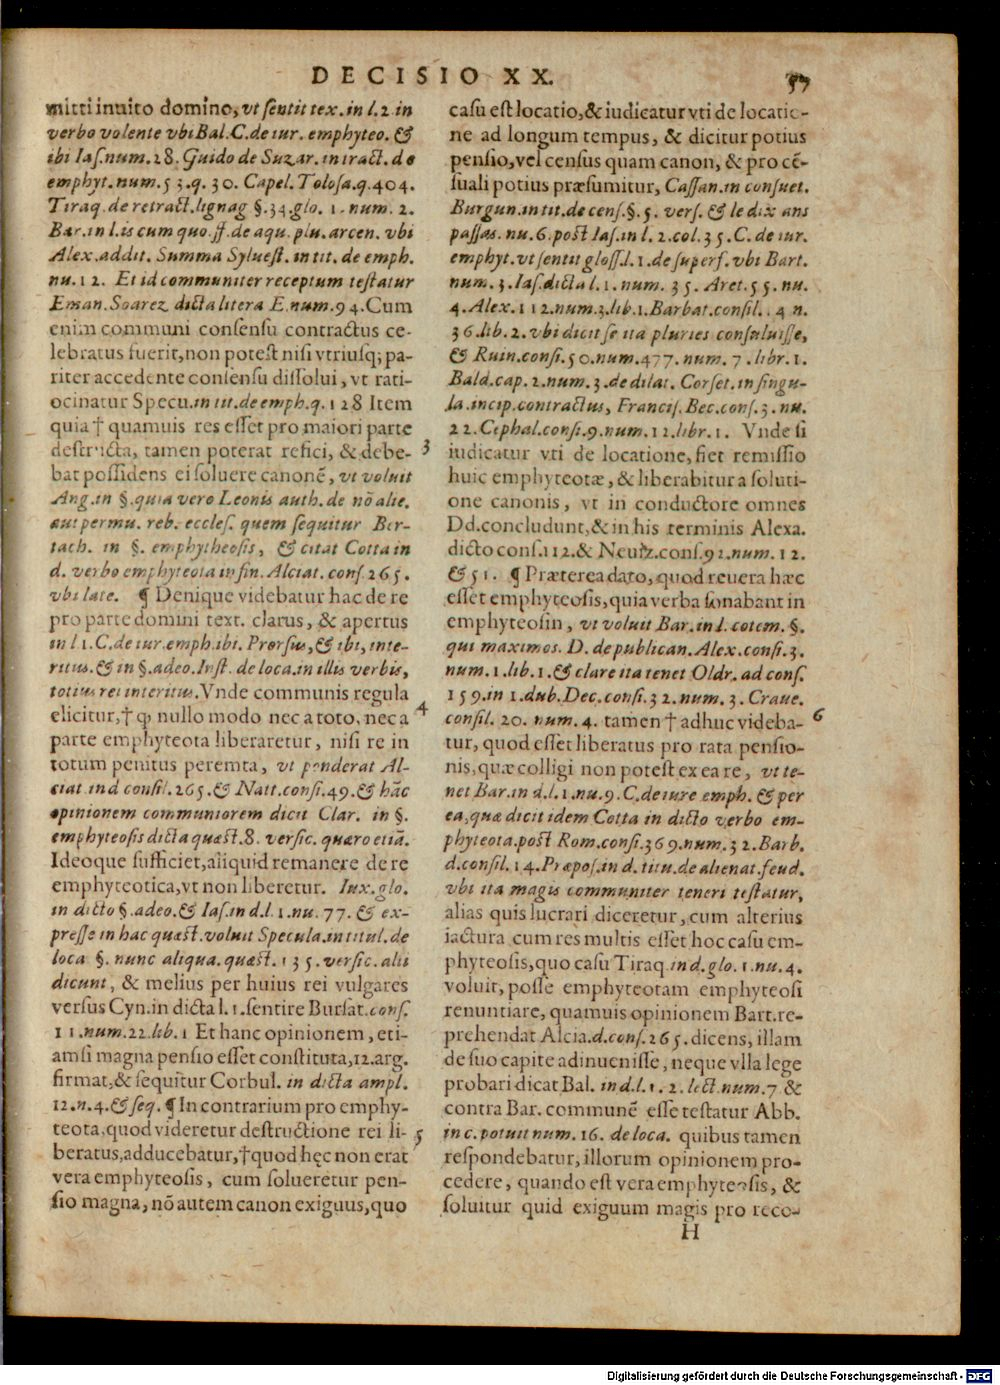 DECISIO XX.
57
mitti inuito domino, vt sentit tex. in l. 2. in
verbo volente vbi Bal. C. de iur. emphyteo. &
ibi Ias. num. 28. Guido de Suzar. in tract. de
emphyt. num. 53. q. 30. Capel. Tolosa. q. 404.
Tiraq. de retract. lignag §. 34. glo. 1. num. 2.
Bar. in l. is cum quo. ff. de aqu. plu. arcen. vbi
Alex. addit. Summa Syluest. in tit. de emph.
nu. 12. Et id communiter receptum testatur
Eman. Soarez dicta litera E. num. 94. Cum
enim communi consensu contractus ce-
lebratus fuerit, non potest nisi vtriusq; pa-
riter accedente consensu dissolui, vt rati-
ocinatur Specu. in tit. de emph. q. 128 Item
quia † quamuis res esset pro maiori parte
destructa, tamen poterat refici, & debe- 3
bat possidens ei soluere canonē, vt voluit
Ang. in §. quia vero Leonis auth. de nō alie.
aut permu. reb. eccles. quem sequitur Ber-
tach. in §. emphytheosis, & citat Cotta in
d. verbo emphyteota in fin. Alciat. cons. 265.
vbi late. ¶ Denique videbatur hac de re
pro parte domini text. clarus, & apertus
in l. 1. C. de iur. emph. ibi. Prorsus, & ibi, inte-
ritus. & in §. adeo. Inst. de loca. in illis verbis,
totius rei interitus. Vnde communis regula
elicitur, † ꝙ nullo modo nec a toto, nec a 4
parte emphyteota liberaretur, nisi re in
totum penitus peremta, vt ponderat Al-
ciat. in d consil. 265. & Natt. consi. 49. & hāc
opinionem communiorem dicit Clar. in §.
emphyteosis dicta quæst. 8. versic. quæro etiā.
Ideoque sufficiet, aliquid remanere de re
emphyteotica, vt non liberetur. Iux. glo.
in dicto §. adeo. & Ias. in d. l. 1. nu. 77. & ex-
presse in hac quæst. voluit Specula. in titul. de
loca §. nunc aliqua. quæst. 135. versic. alii
dicunt, & melius per huius rei vulgares
versus Cyn. in dicta l. 1. sentire Bursat. cons.
11. num. 22. lib. 1 Et hanc opinionem, eti-
amsi magna pensio esset constituta, 12. arg.
firmat, & sequitur Corbul. in dicta ampl.
12. n. 4. & seq. ¶ In contrarium pro emphy-
teota, quod videretur destructione rei li- 5
beratus, adducebatur, † quod hęc non erat
vera emphyteosis, cum solueretur pen-
sio magna, nō autem canon exiguus, quo
casu est locatio, & iudicatur vti de locatio-
ne ad longum tempus, & dicitur potius
pensio, vel census quam canon, & pro cē-
suali potius præsumitur, Cassan. in consuet.
Burgun. in tit. de cens. §. 5. vers. & le dix ans
passas. nu. 6. post Ias. in l. 2. col. 35. C. de iur.
emphyt. vt sentit gloss. l. 1. de superf. vbi Bart.
num. 3. Ias. dicta l. 1. num. 35. Aret. 55. nu.
4. Alex. 112. num. 3. lib. 1. Barbat. consil. 4 n.
36. lib. 2. vbi dicit se ita pluries consuluisse,
& Ruin. consi. 50. num. 477. num. 7. libr. 1.
Bald. cap. 2. num. 3. de dilat. Corset. in singu-
la. in cip. contractus, Francis. Bec. cons. 3. nu.
22. Cephal. consi. 9. num. 12. libr. 1. Vnde si
iudicatur vti de locatione, fiet remissio
huic emphyteotæ, & liberabitur a soluti-
one canonis, vt in conductore omnes
Dd. concludunt, & in his terminis Alexa.
dicto cons. 112. & Neuiz. cons. 92. num. 12.
& 51. ¶ Præterea dato, quod reuera hæc
esset emphyteosis, quia verba sonabant in
emphyteosin, vt voluit Bar. in l. cotem. §.
qui maximos. D. de publican. Alex. consi. 3.
num. 1. lib. 1. & clare ita tenet Oldr. ad cons.
159. in 1. dub. Dec. consi. 32. num. 3. Craue.
consil. 20. num. 4. tamen † adhuc videba- 6
tur, quod esset liberatus pro rata pensio-
nis, quæ colligi non potest ex ea re, vt te-
net Bar. in d. l. 1. nu. 9. C. de iure emph. & per
ea, quæ dicit idem Cotta in dicto verbo em-
phyteota. post Rom. consi. 369. num. 32. Barb.
d. consil. 14. Præpos. in d. titu. de alienat. feud.
vbi ita magis communiter teneri testatur,
alias quis lucrari diceretur, cum alterius
iactura cum res multis esset hoc casu em-
phyteosis, quo casu Tiraq. in d. glo. 1. nu. 4.
voluit, posse emphyteotam emphyteosi
renuntiare, quamuis opinionem Bart. re-
prehendat Alcia. d. cons. 265. dicens, illam
de suo capite adinuenisse, neque vlla lege
probari dicat Bal. in d. l. 1. 2. lect. num. 7 &
contra Bar. communē esse testatur Abb.
in c. potuit num. 16. de loca. quibus tamen
respondebatur, illorum opinionem pro-
cedere, quando est vera emphyteosis, &
soluitur quid exiguum magis pro reco-
H
Digitalisierung gefördert durch die Deutsche Forschungsgemeinschaft - DFG